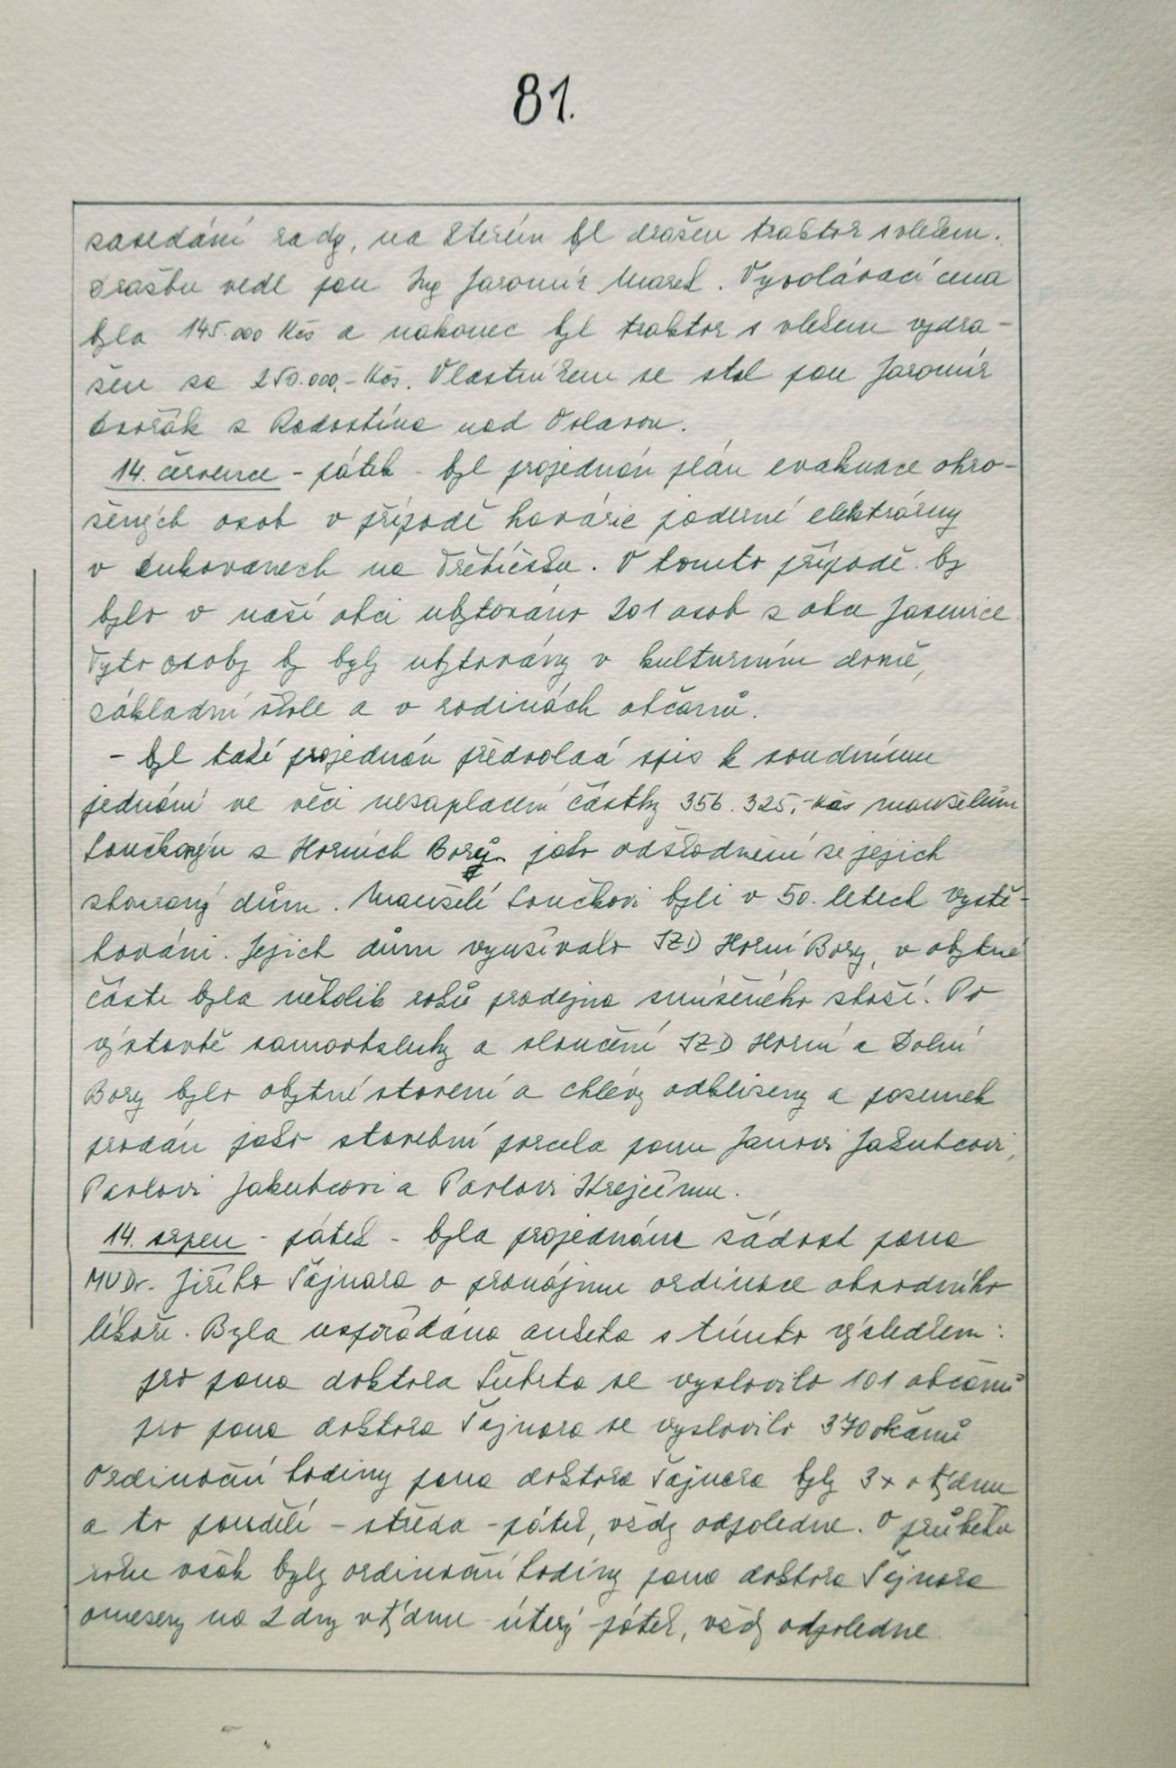 81.
zasedání rady, na kterém byl dražen traktor s vlekem.
Dražbu vedl pan Ing Jaromír Mareš. Vyvolávací cena
byla 145.000 Kčs a nakonec byl traktor s vlekem vydra-
žen za 250.000,- Kčs. Vlastníkem se stal pan Jaromír
Dvořák z Radostína nad Oslavou.
14. července - pátek - byl projednán plán evakuace ohro-
žených osob v případě havárie jaderné elektrárny
v Dukovanech na Třebíčsku. V tomto případě by
bylo v naší obci ubytováno 201 osob z obce Jasenice
Tyto osoby by byly ubytovány v kulturním domě,
základní škole a v rodinách občanů.
- byl také projednán předvolací spis k soudnímu
jednání ve věci nezaplacení částky 356.325,- Kčs manželům
Loučkovým z Horních Borů jako odškodnění za jejich
zbouraný dům. Manželé Loučkovi byli v 50. letech vystě-
hováni. Jejich dům využívalo JZD Horní Bory, v obytné
části byla několik roků prodejna smíšeného zboží. Po
výstavbě samoobsluhy a sloučení JZD Horní a Dolní
Bory bylo obytné stavení a chlévy odklizeny a pozemek
prodán jako stavební parcela panu Janovi Jakubcovi,
Pavlovi Jakubcovi a Pavlovi Krejčímu.
14. srpen - pátek - byla projednána žádost pana
MUDr. Jiřího Šajnara o pronájmu ordinace obvodního
lékaře. Byla uspořádána anketa s tímto výsledkem:
pro pana doktora Šubrta se vyslovilo 101 občanů
pro pana doktora Šajnara se vyslovilo 370 občanů
Ordinační hodiny pana doktora Šajnara byly 3x v týdnu
a to pondělí - středa - pátek, vždy odpoledne. V průběhu
roku však byly ordinační hodiny pana doktora Šajnara
omezeny na 2 dny v týdnu - úterý - pátek, vždy odpoledne